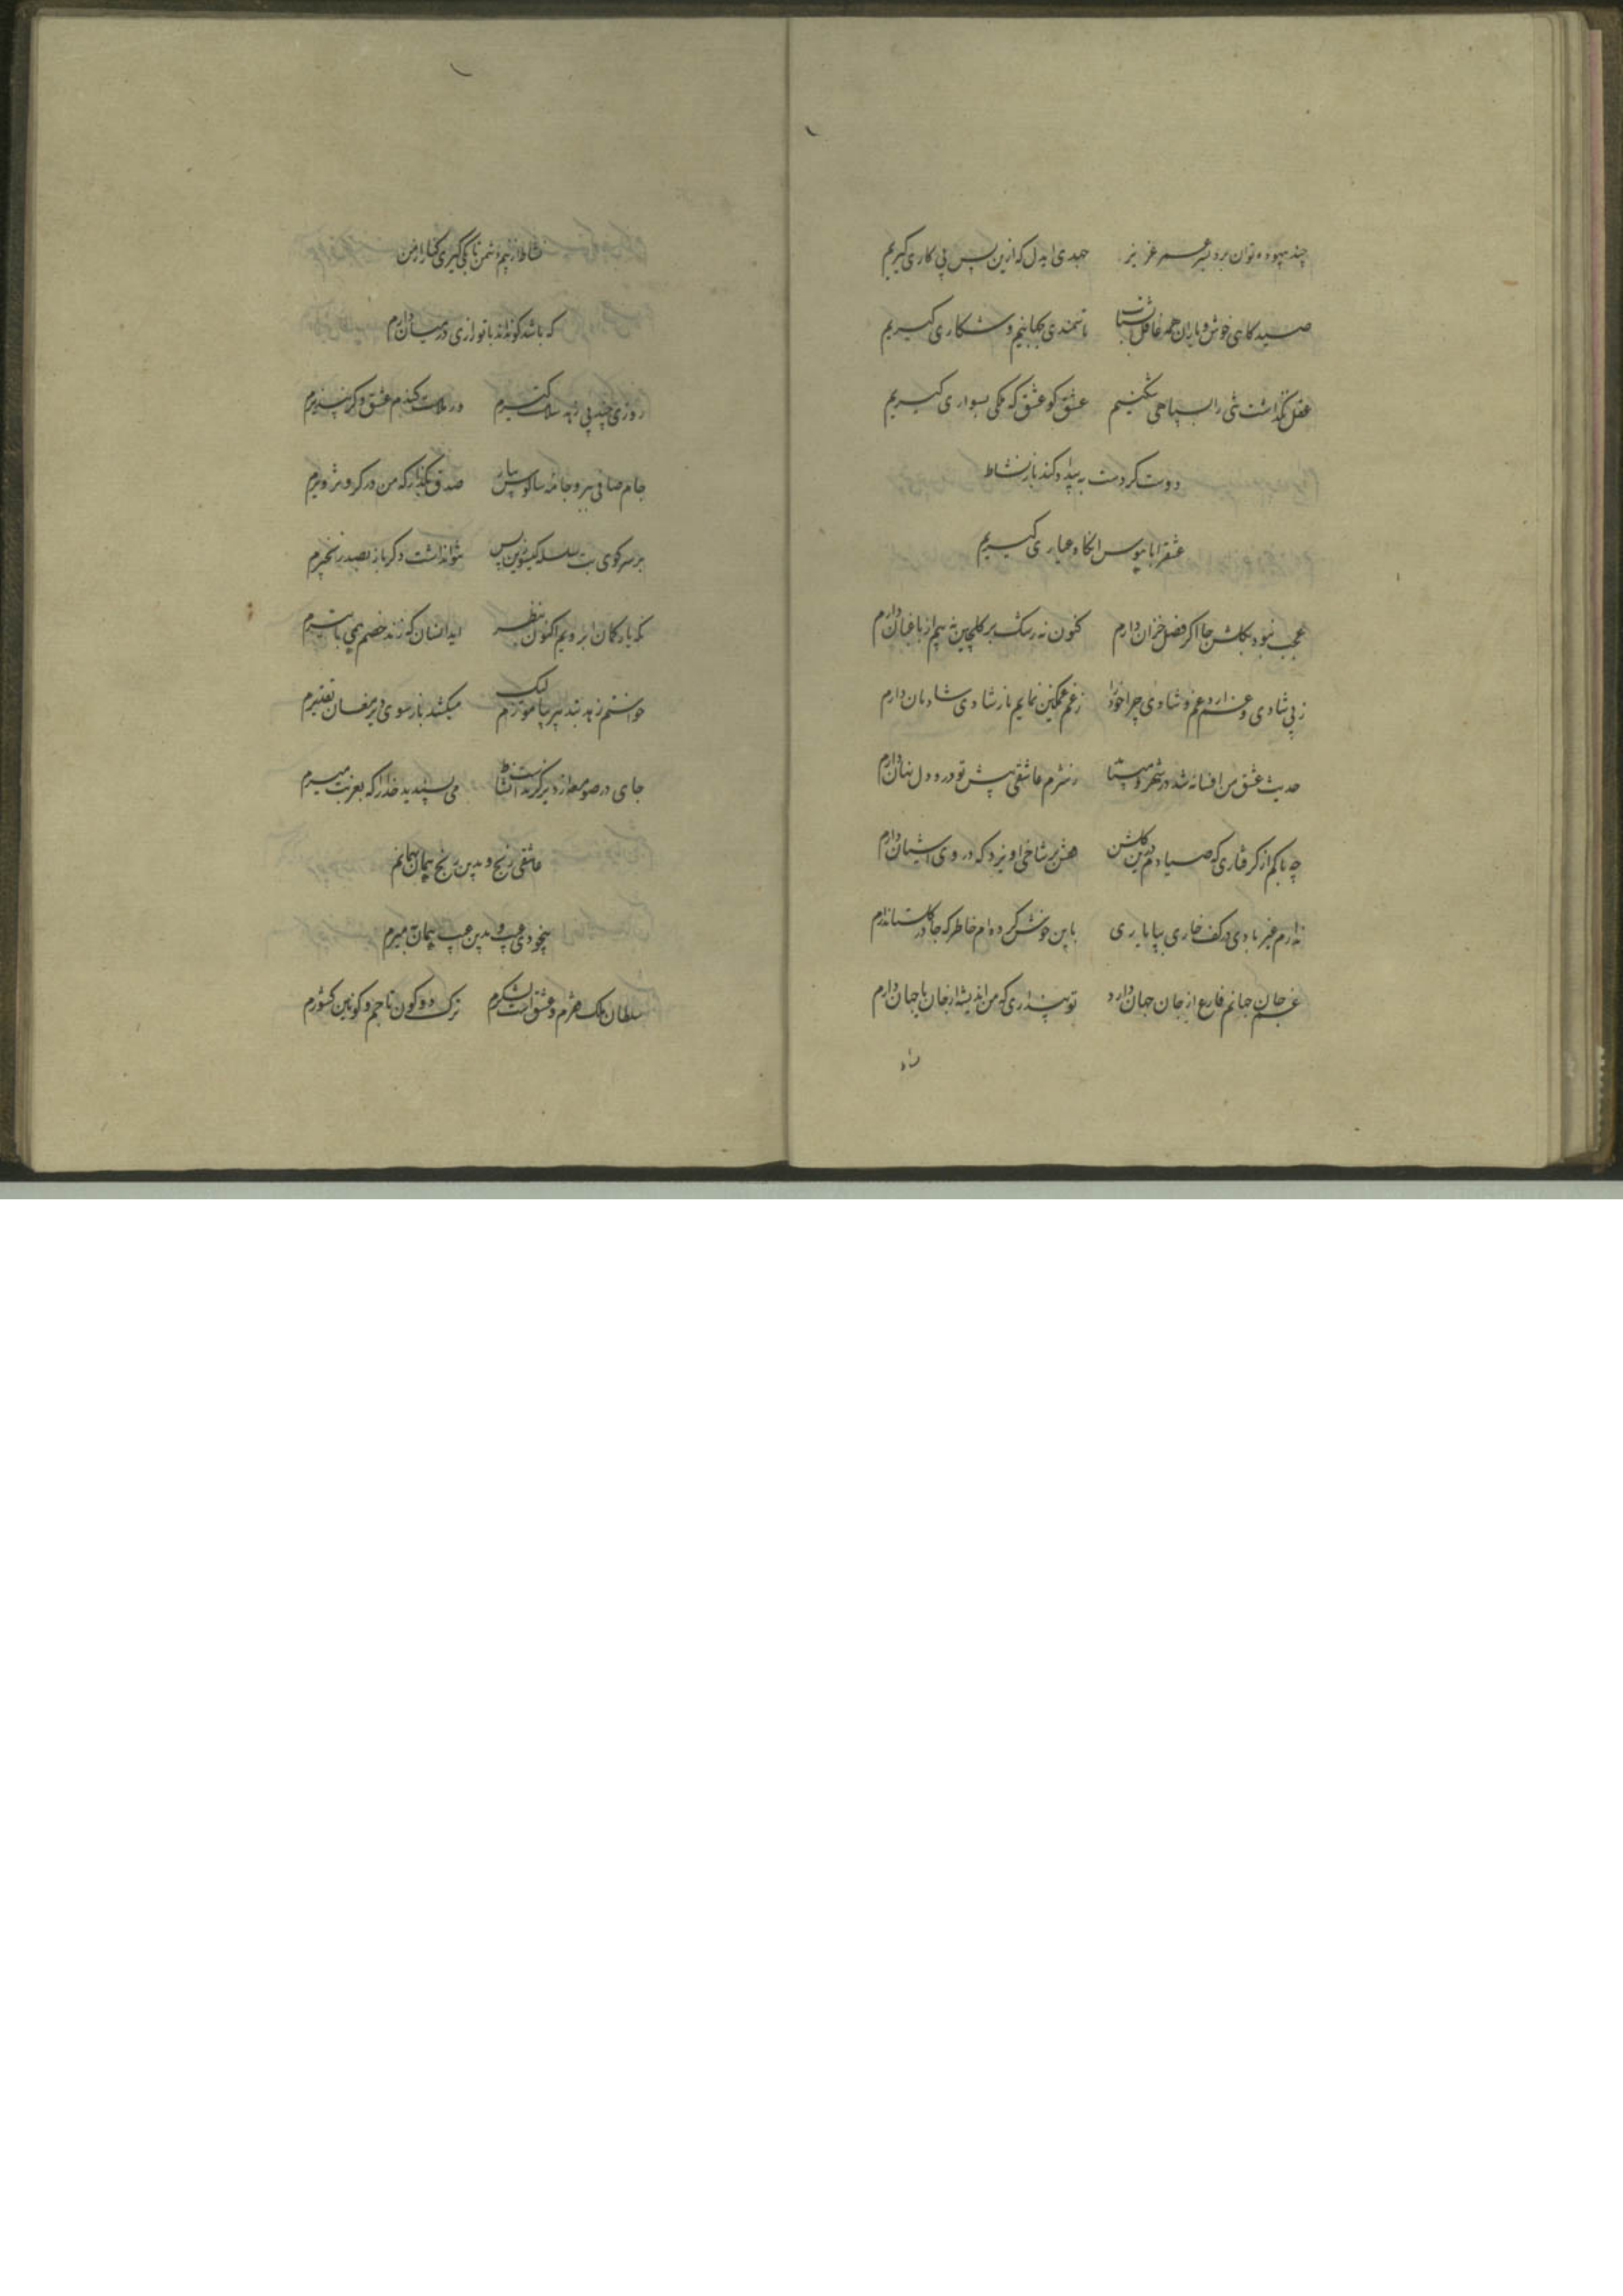 چند بیهوده توان برد بسر عمر عزیز جهدی ایدل که ازین پس پی کاری گیریم
صیدگاهی خوش و یاران همه غافل بشتاب تا سمندی بجهانیم و شکاری گیریم
عقل نگذاشت تنی را بسپاهی شکنیم عشق کو عشق که ملکی بسواری گیریم
دوست گر دست به بیداد کند باز نشاط
عشق را با هوس آنگاه عیاری گیریم
عجب نبود بگلشن جا اگر فصل خزان دارم کنون نه رشک بر گلچین نه بیم از باغبان دارم
ز پی شادی و غم دارد غم و شادی چرا خود را ز غم غمگین نمایم یا ز شادی شادمان دارم
حدیث عشق من افسانه شد در شهر و ز شرم عاشقی پیش تو در دل نهان دارم
چه باکم از گرفتاری که صیادم درین گلشن همی بر شاخی آویزد که در وی آشیان دارم
ندارم غیر بادی در کف خاری بپا باری باین خوش کرده‌ام خاطر که جا در گلستان دارم
غم جان جهانم فارغ از جان جهان دارد تو پنداری که من اندیشه از جان یا جهان دارم
نشاط از بیم دشمن تا بکی گیری کنار از من
که باشد کو نداند با تو رازی در میان دارم
روزی چند پی زهد سلامت گیرم ور ملامت کندم عشق دگر نپذیرم
جام صافی بر و جامه سالوس بیار صدق بگذار که من در گرو تزویرم
بر سر کوی بت سلسله گیسو زین پس نتواند داشت دگر باز بصد زنجیرم
که باد کمان ابرویم اکنون بنظر آید انسان که زند خصم همی با تیرم
خواستم زهد پیر بیاموزم لیک میکشد باز سوی دیر مغان تقدیرم
جای در صومعه‌ از دیر گرت نیست نشاط می‌پسندید خدا را که بغربت میرم
عاشقی رنج و بدین رنج همان
بیخودی عیب و بدین عیب همان میرم
سلطان ملک فقرم و عشق است لشکرم ترک دو کون تاجم و کونین کشورم